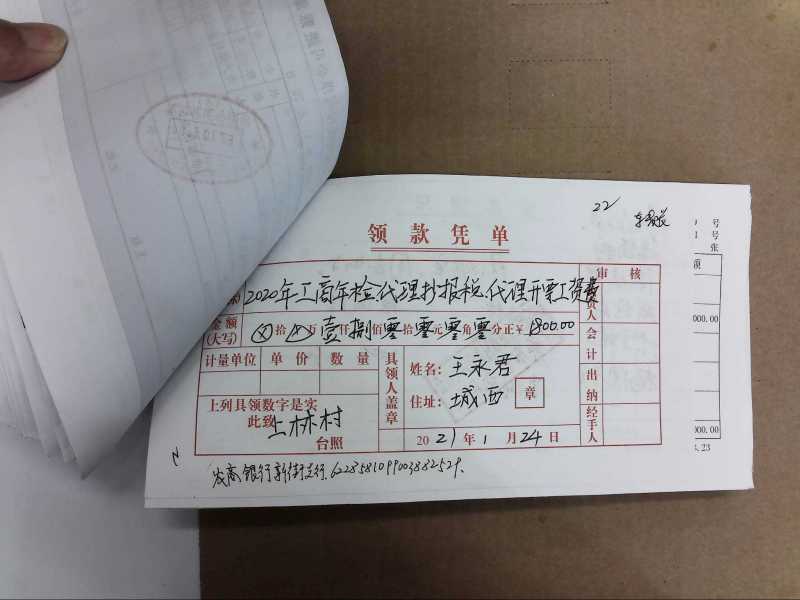 22/
领款凭单
审核
2020年工商年检代理抄报税.代理开票工资费
责人
金额
(大写)
拾 万 壹仟 捌佰 零拾 零元 零角 零分正¥ 1800.00
会计
计量单位 单价 数量
具领人盖章
姓名: 王永君
住址: 城西
章
出纳
上列具领数字是实
此致 上林村
台照
2021年1月24日
经手人
农商银行新街支行. 6228581099003882529.
号
号
张
额
000.00
000.00
.23